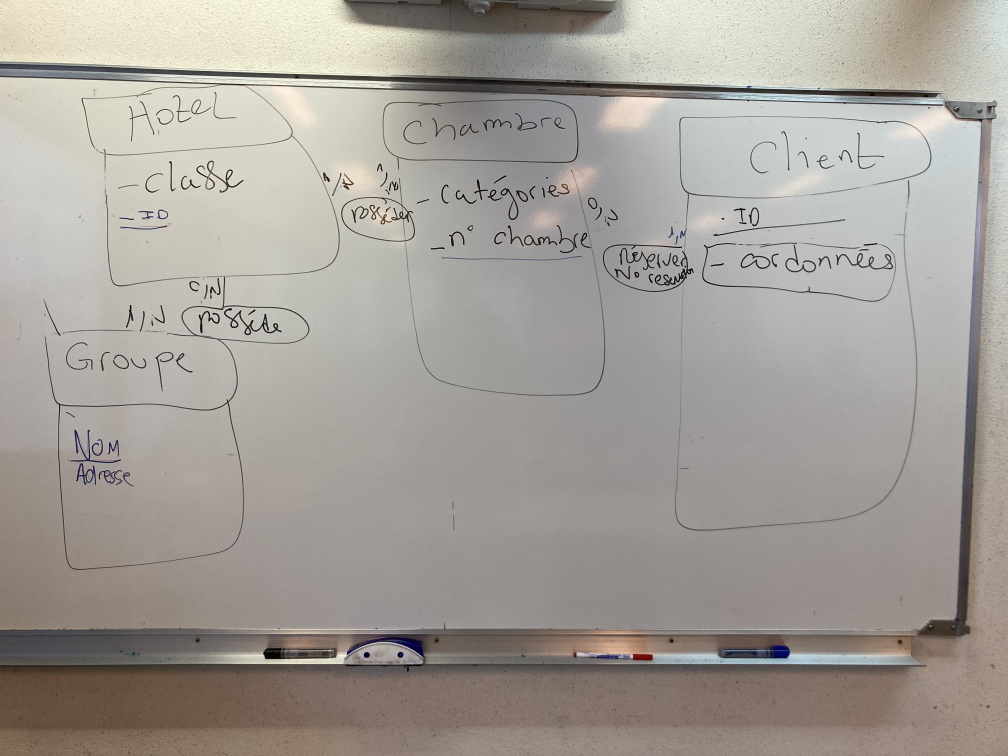 Hotel
- classe
- ID
1,N
posséder
Chambre
- catégories
- n° chambre
0,N
1,N
réserver
Client
- ID
- cordonnées
0,N
1,N
possède
Groupe
NOM
Adresse